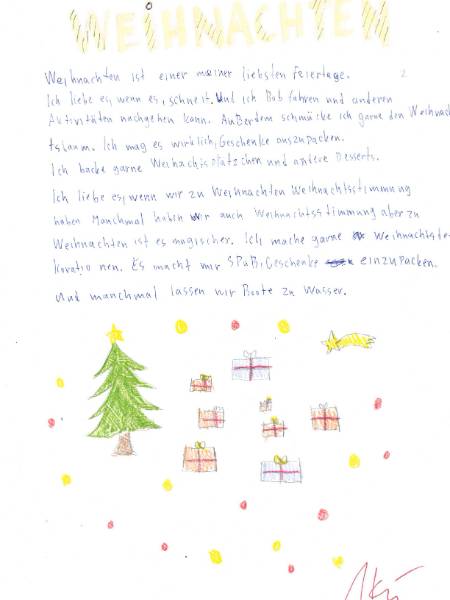 WEIHNACHTEN
Weihnachten ist einer meiner liebsten Feiertage.
2
Ich liebe es, wenn es, schneit. Und ich Bob fahren und anderen
Aktivitäten nachgehen kann. Außerdem schmücke ich garne den Weihnach
tsbaum. Ich mag es wirklich, Geschenke auszupacken.
Ich backe garne Weihachtsplätzchen und andere Desserts.
Ich liebe es, wenn wir zu Weihnachten Weihnachtsstimmung
haben Manchmal haben wir auch Weihnachtsstimmung aber zu
Weihnachten ist es magischer. Ich mache garne Weihnachtsde
koratio nen. Es macht mir SPaß, Geschenke einzupacken.
Und manchmal lassen wir Boote zu Wasser.